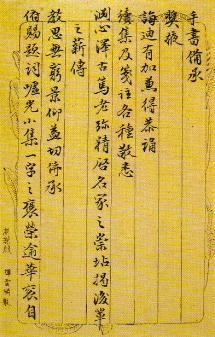 手書備承
獎掖
誨迪有加惠得恭誦
續集及箋註各種敬悉
淵心澤古篤老彌精啓名家之崇坫揭後輩
之薪傳
教思無窮景仰益切併承
俯賜敘詞嘘光小集一字之襃榮逾華袞自